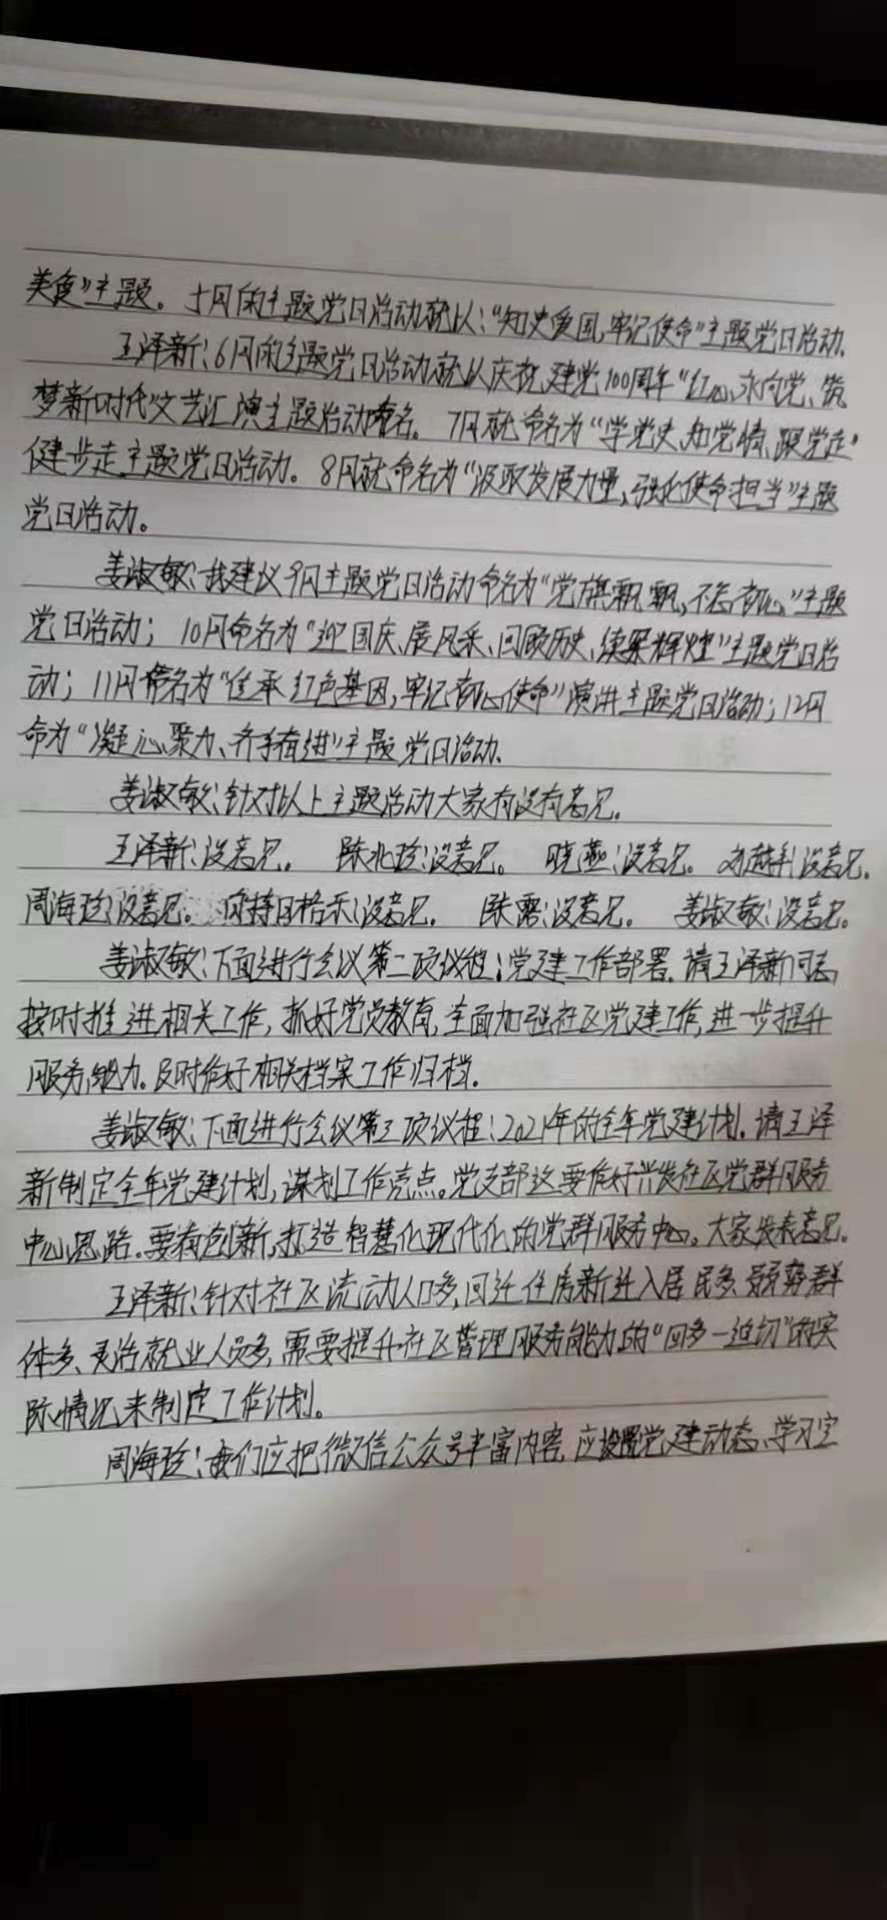 美食”主题。5月的主题党日活动就以:“知史爱国,牢记使命”主题党日活动.
王泽新:6月的主题党日活动就以庆祝建党100周年“红心永向党、筑
梦新时代”文艺汇演主题活动命名。7月就命名为“学党史、知党情、跟党走”
健步走主题党日活动。8月就命名为“汲取发展力量,强化使命担当”主题
党日活动。
姜淑敏:我建议9月主题党日活动命名为“党旗飘飘,不忘初心”主题
党日活动;10月命名为“迎国庆、展风采、回顾历史、续果辉煌”主题党日活
动;11月命名为“传承红色基因,牢记初心使命”演讲主题党日活动;12月
命为“凝心聚力、齐手奋进”主题党日活动.
姜淑敏:针对以上主题活动大家有没有意见。
王泽新:没意见。陈北玲:没意见。晓燕:没意见。刘越利:没意见.
周海玲:没意见。格乐:没意见.陈露:没意见.姜淑敏:没意见。
姜淑敏:下面进行会议第二项议程:党建工作部署.请王泽新同志
按时推进相关工作,抓好党员教育,全面加强社区党建工作,进一步提升
服务能力.及时做好相关档案工作归档.
姜淑敏:下面进行会议第三项议程:2021年的全年党建计划.请王泽
新制定全年党建计划,谋划工作亮点。党支部这要做好兴发社区党群服务
中心思路.要有创新,打造智慧化现代化的党群服务中心。大家发表意见.
王泽新:针对社区流动人口多,回迁住房新进入居民多、弱势群
体多、灵活就业人员多,需要提升社区管理服务能力的“四多一迫切”的实
际情况来制定工作计划。
周海玲:我们应把微信公众号丰富内容,应设置党建动态、学习宣